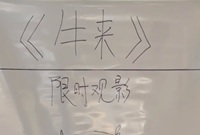 《牛来》
限时观影